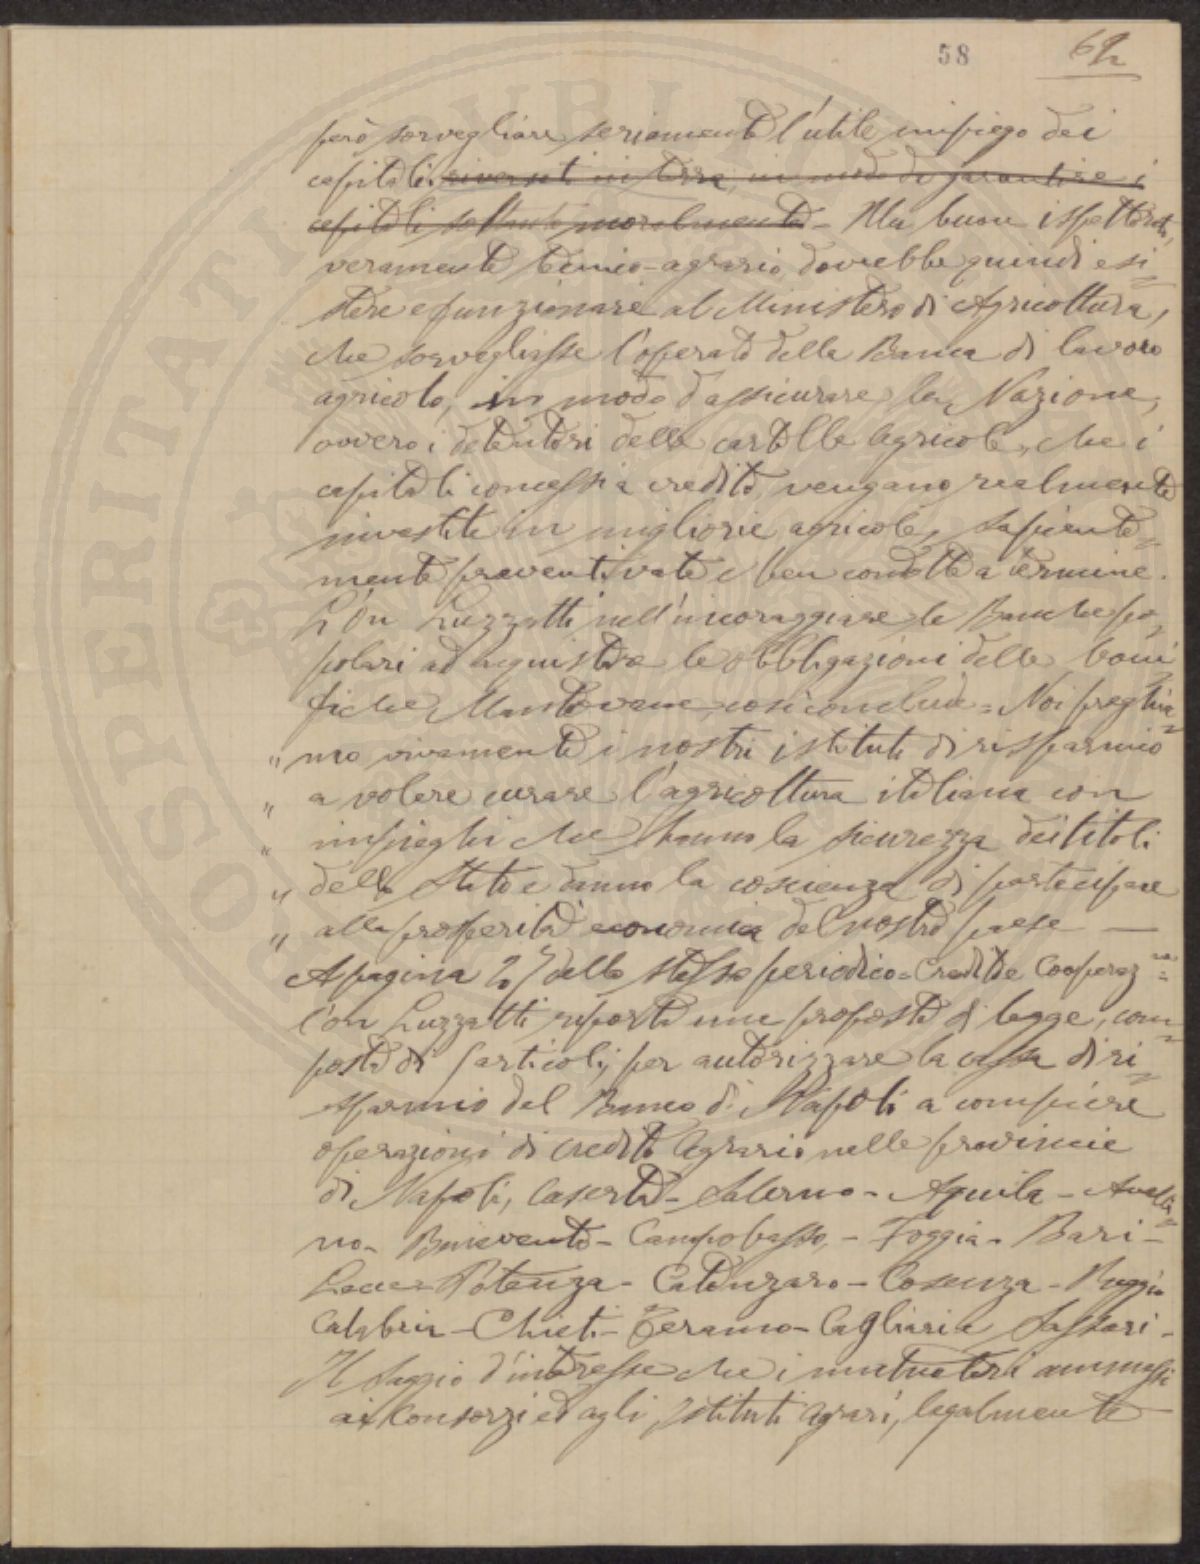 58 62
però sorvegliare seriamente l'utile impiego dei
capitali riversati in terra, in modo da garantire i
capitali soltanto moralmente - Un buon ispettorato,
veramente tecnico-agrario, dovrebbe quindi esi=
stere e funzionare al Ministero di Agricoltura,
che sorvegliasse l'operato della Banca di lavoro
agricolo, in modo d'assicurare la Nazione,
ovvero i detentori delle cartelle agricole, che i
capitali concessi a credito, vengano realmente
investiti in migliorie agricole, sapiente=
mente preventivate e ben condotte a termine.
L'On Luzzatti nell'incoraggiare le Banche po=
polari ad acquistare le obbligazioni delle boni
fiche Mantovane, così conclude = Noi preghia=
" mo vivamente i nostri istituti di risparmio
" a volere curare l'agricoltura italiana con
" impieghi che hanno la sicurezza dei titoli
" dello Stato e danno la coscienza di partecipare
" alla prosperità economica del nostro paese —
A pagina 207 dello stesso periodico = Credito e Cooperaz ne =
l'on Luzzatti riporta una proposta di legge, com=
posta di articoli, per autorizzare la cassa di ri=
sparmio del Banco di Napoli a compiere
operazioni di credito agrario nelle provincie
di Napoli, Caserta - Salerno - Aquila - Avelli=
no - Benevento - Campobasso, - Foggia - Bari -
Lecce - Potenza - Catanzaro - Cosenza - Reggio
Calabria - Chieti - Teramo - Cagliari a Sassari -
Il Saggio d'interesse che i mutuatari ammessi
ai Consorzi ed agli Istituti agrari, legalmente